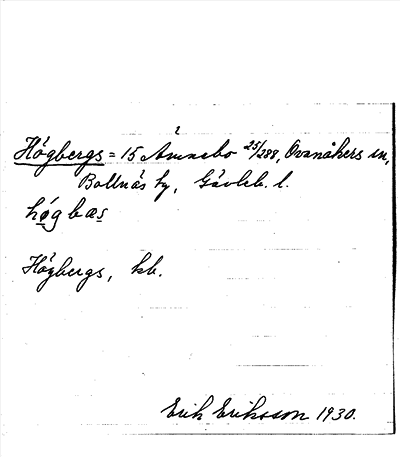 Högbergs = 15 Ämnebo 25/288, Ovanåkers sn,
Bollnäs tg, Gävleb. l.
høgbæs
Högbergs, kb.
Erik Eriksson 1930.